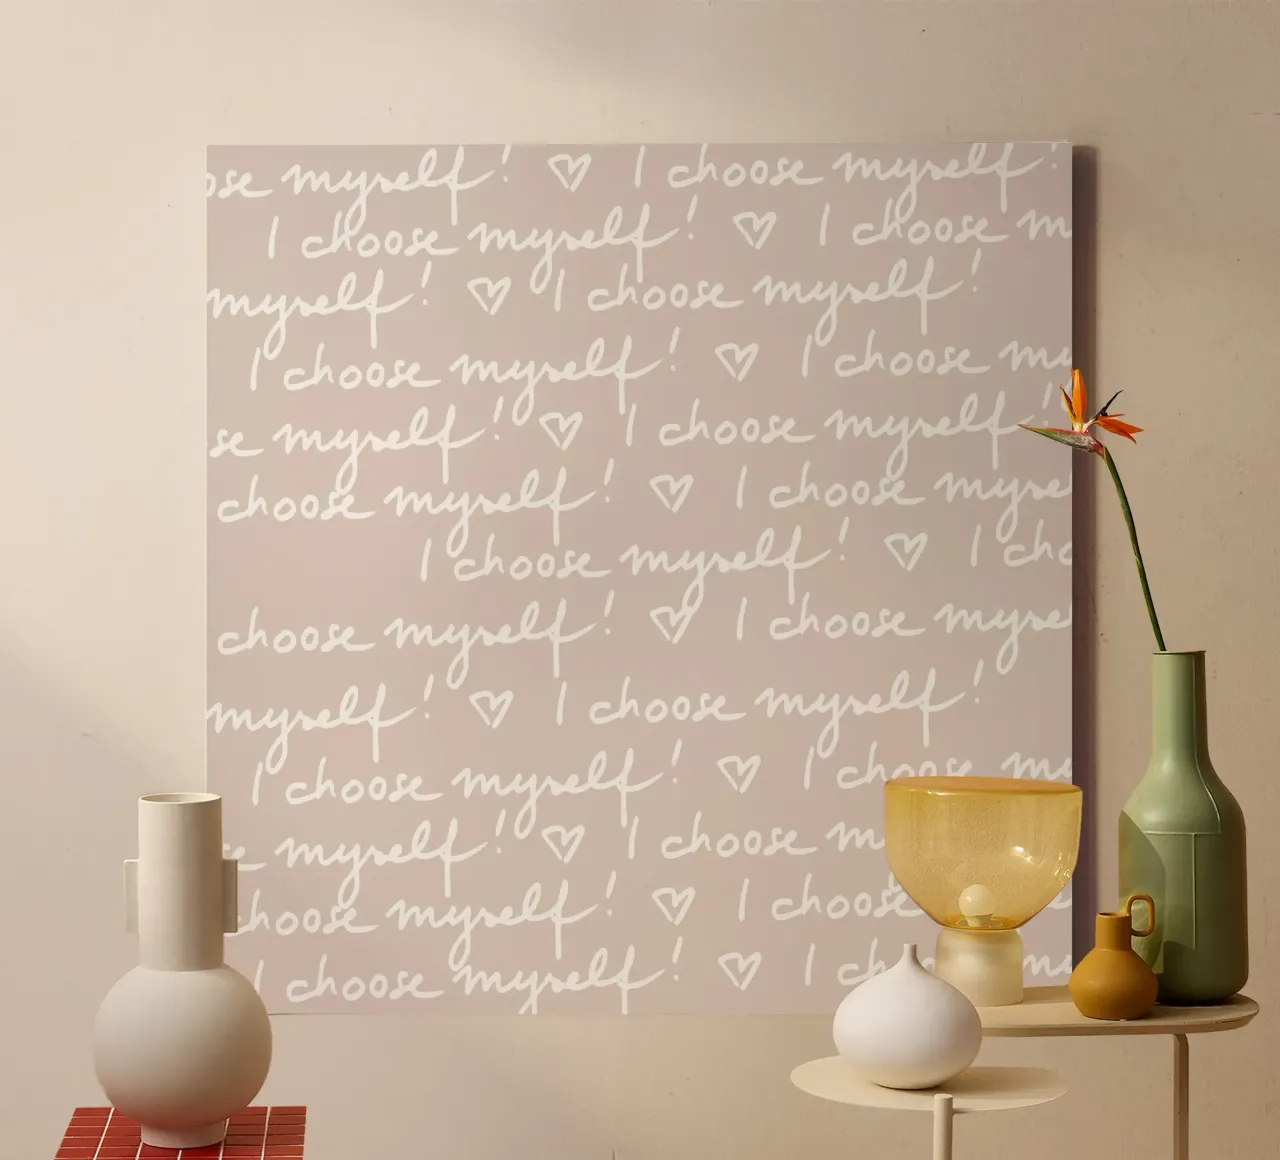 ose myself! ♡ I choose myself!
I choose myself! ♡ I choose m
myself! ♡ I choose myself!
I choose myself! ♡ I choose my
se myself! ♡ I choose myself!
choose myself! ♡ I choose myse
I choose myself! ♡ I cho
choose myself! ♡ I choose myse
myself! ♡ I choose myself!
I choose myself! ♡ I choose my
e myself! ♡ I choose m
choose myself! ♡ I choose
I choose myself! ♡ I ch my